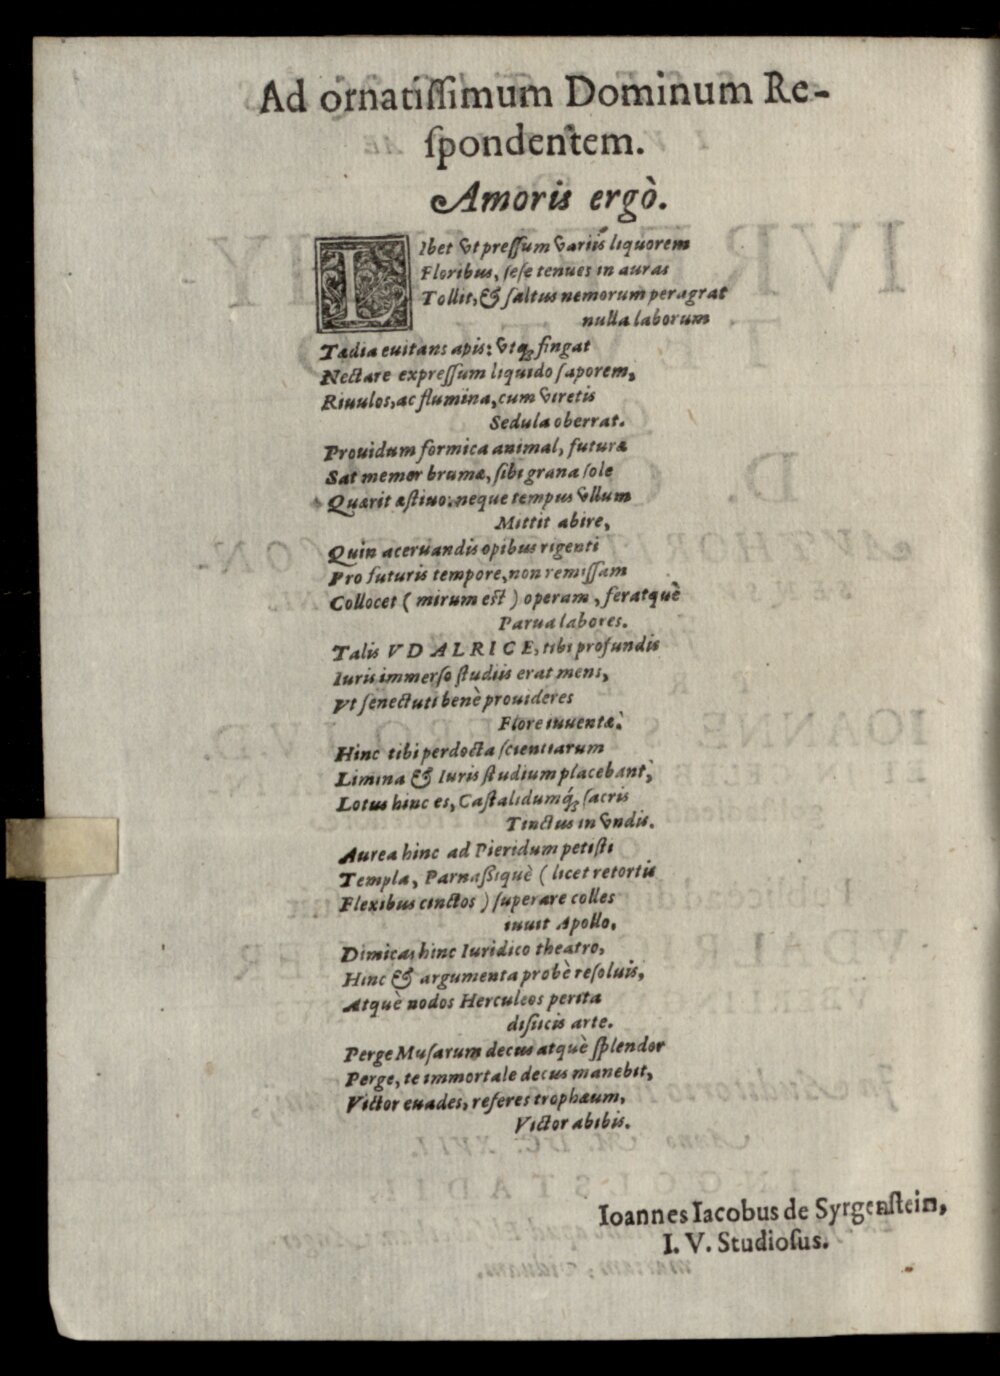 Ad ornatiſſimum Dominum Re-
ſpondentem.
Amoris ergò.
LIbet vt preſſum varijs liquorem
Floribus, ſeſe tenues in auras
Tollit, & ſaltus nemorum peragrat
nulla laborum
Tædia euitans apis: vtq; fingat
Nectare expreſſum liquido ſaporem,
Riuulos, ac flumina, cum viretis
Sedula oberrat.
Prouidum formica animal, futuræ
Sat memor brumæ, ſibi grana ſole
Quærit æſtiuo: neque tempus vllum
Mittit abire,
Quin aceruandis opibus rigenti
Pro futuris tempore, non remiſſam
Collocet ( mirum eſt ) operam, feratquè
Parua labores.
Talis VDALRICE, tibi profundis
Iuris immerſo ſtudiis erat mens,
Vt ſenectuti benè prouideres
Flore iuuentæ.
Hinc tibi perdocta ſcientiarum
Limina & Iuris ſtudium placebant,
Lotus hinc es, Caſtalidumq́; ſacris
Tinctus in vndis.
Aurea hinc ad Pieridum petiſti
Templa, Parnaßiquè ( licet retortis
Flexibus cinctos ) ſuperare colles
iuuit Apollo,
Dimicas hinc Iuridico theatro,
Hinc & argumenta probè reſoluis,
Atquè nodos Herculeos perita
diſiicis arte.
Perge Muſarum decus atquè ſplendor
Perge, te immortale decus manebit,
Victor euades, referes trophæum,
Victor abibis.
Ioannes Iacobus de Syrgenſtein,
I. V. Studioſus.